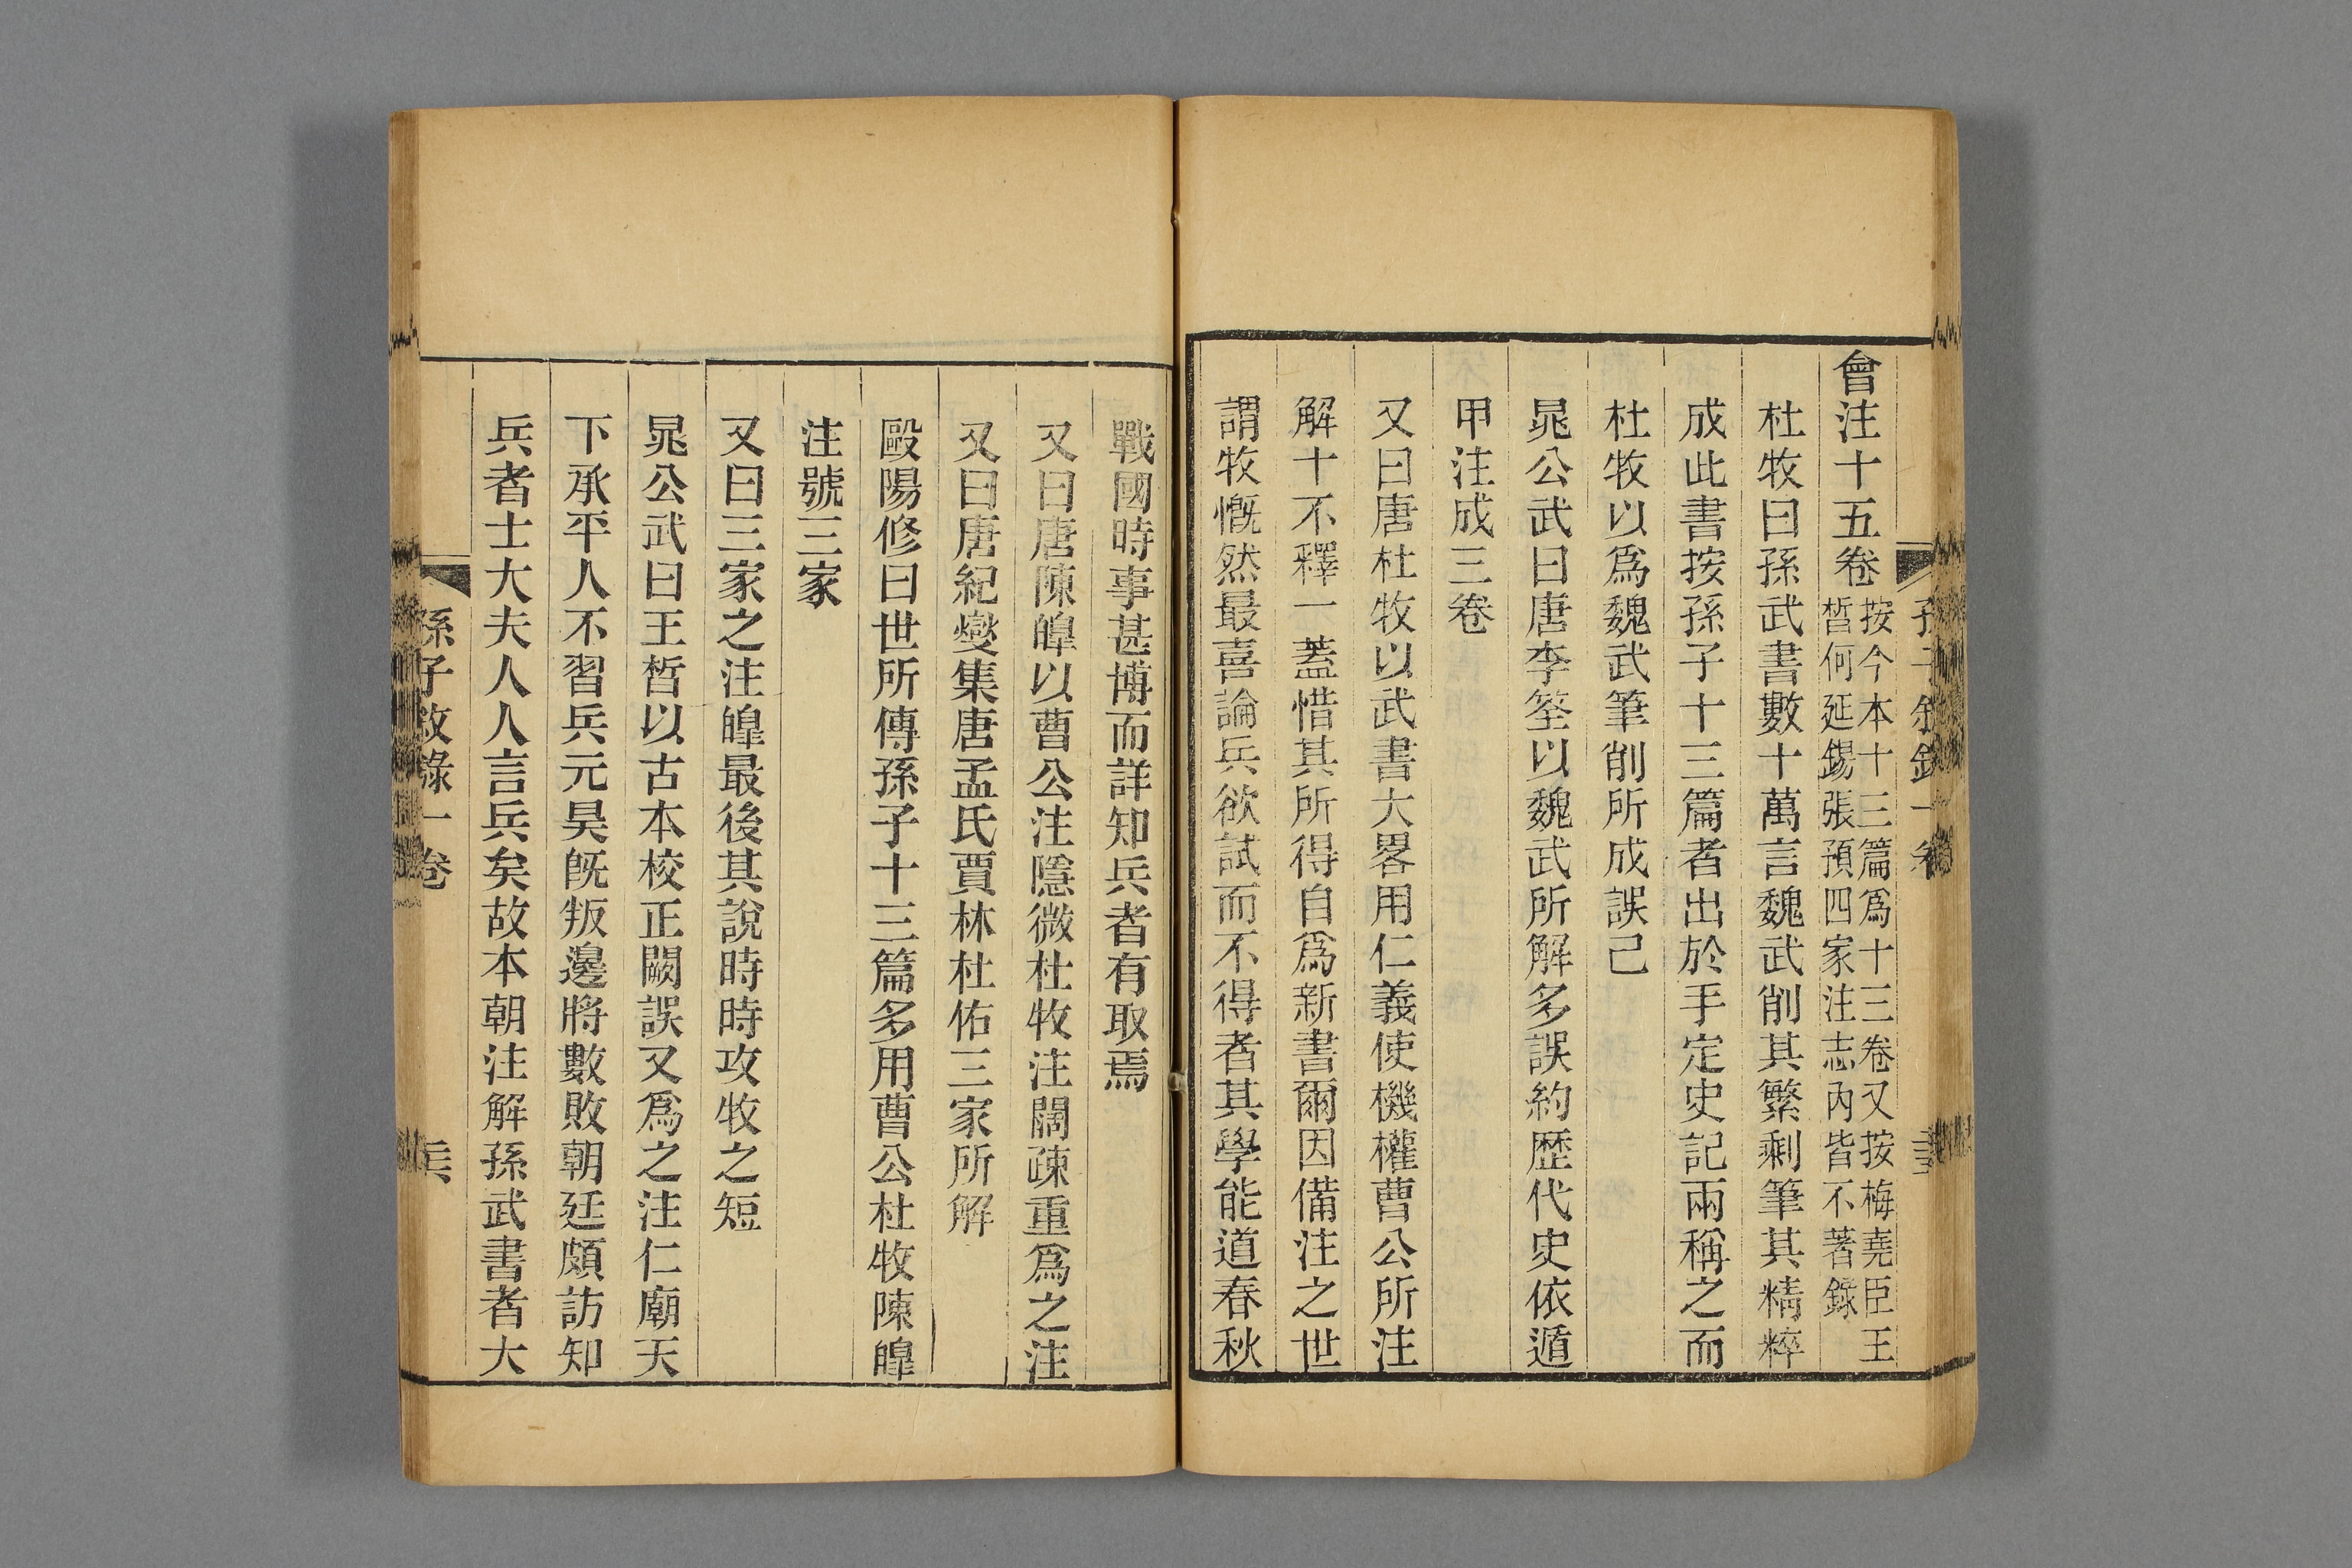 會注十五卷按今本十三篇爲十三卷又按梅堯臣王
晳何延錫張預四家注志內皆不著錄
杜牧曰孫武書數十萬言魏武削其繁剩筆其精粹
成此書按孫子十三篇者出於手定史記兩稱之而
杜牧以爲魏武筆削所成誤己
晁公武曰唐李筌以魏武所解多誤約歷代史依遁
甲注成三卷
又曰唐杜牧以武書大畧用仁義使機權曹公所注
解十不釋一蓋惜其所得自爲新書爾因備注之世
謂牧慨然最喜論兵欲試而不得者其學能道春秋
戰國時事甚博而詳知兵者有取焉
又曰唐陳皥以曹公注隱微杜牧注闊疎重爲之注
又曰唐紀燮集唐孟氏賈林杜佑三家所解
歐陽修曰世所傳孫子十三篇多用曹公杜牧陳皥
注號三家
又曰三家之注皥最後其說時時攻牧之短
晁公武曰王晳以古本校正闕誤又爲之注仁廟天
下承平人不習兵元昊旣叛邊將數敗朝廷頗訪知
兵者士大夫人人言兵矣故本朝注解孫武書者大
孫子敘錄一卷